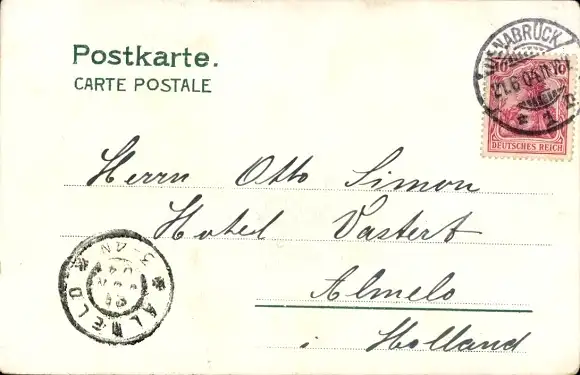 Postkarte.
CARTE POSTALE
OSNABRÜCK
21.6.04.11-12
* 1
10 10
DEUTSCHES REICH
Herrn Otto Simon
Hotel Vastert
Almelo
i Holland
ALMELO
21
04
3-4N